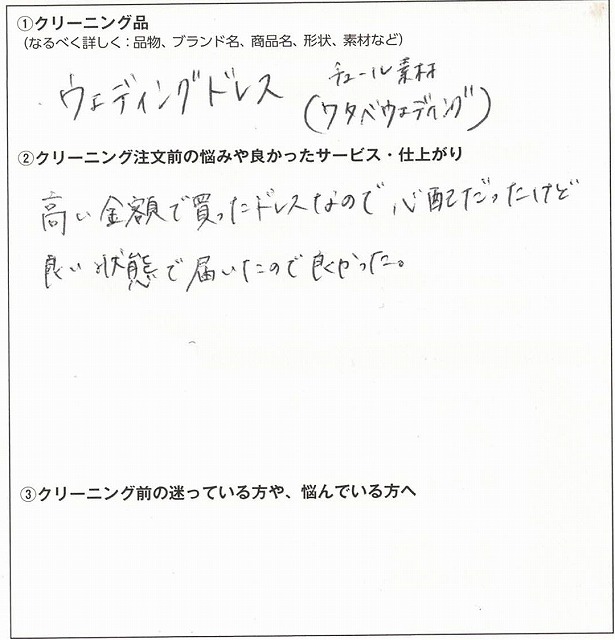 ①クリーニング品
（なるべく詳しく：品物、ブランド名、商品名、形状、素材など）
ウェディングドレス チュール素材
（ワタベウェディング）
②クリーニング注文前の悩みや良かったサービス・仕上がり
高い金額で買ったドレスなので心配だったけど
良い状態で届いたので良かった。
③クリーニング前の迷っている方や、悩んでいる方へ